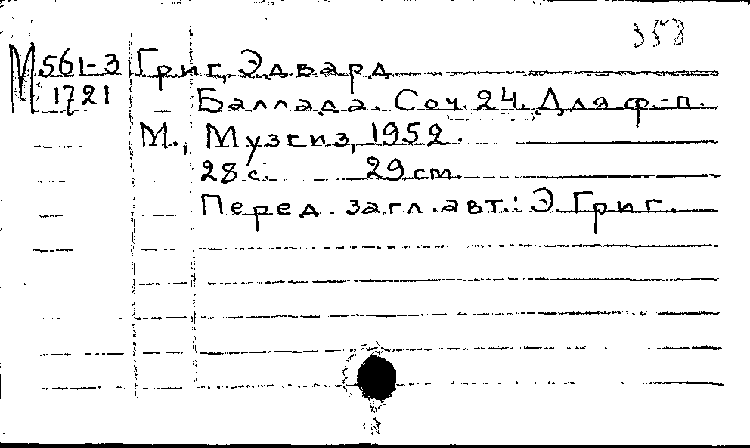 358
М 561-3 Григ, Эдвард
1721 Баллада. Соч. 24. Для ф.-п.
М., Музгиз, 1952.
28 с. 29 см.
Перед. загл. авт.: Э. Григ.